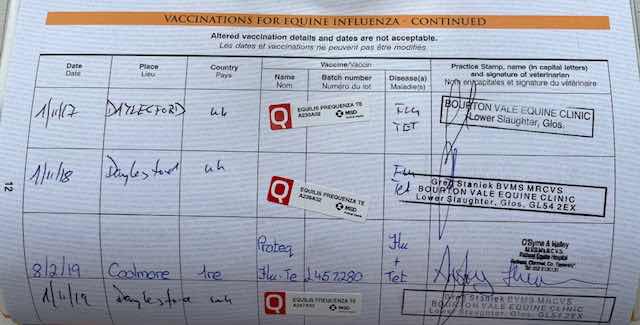 VACCINATIONS FOR EQUINE INFLUENZA - CONTINUED
Altered vaccination details and dates are not acceptable.
Les dates et vaccinations ne peuvent pas être modifiés
Date
Date
Place
Lieu
Country
Pays
Vaccine/Vaccin
Name
Nom
Batch number
Numéro du lot
Disease(s)
Maladie(s)
Practice Stamp, name (in capital letters)
and signature of veterinarian
Nom en capitales et signature du vétérinaire
1/11/17 DAYLESFORD uk
EQUILIS PREQUENZA TE
MSD
Flu
TET
BOURTON VALE EQUINE CLINIC
Lower Slaughter, Glos.
1/11/18 Daylesford uk
EQUILIS PREQUENZA TE
MSD
Flu
Tet
Greg Staniek BVMS MRCVS
BOURTON VALE EQUINE CLINIC
Lower Slaughter, Glos, GL54 2EX
12
8/2/19 Coolmore Ire
Proteq
Flu-Te L457280
Flu
+
Tet
1/11/19 Daylesford uk
EQUILIS PREQUENZA TE
MSD
Greg Staniek BVMS MRCVS
BOURTON VALE EQUINE CLINIC
Lower Slaughter, Glos, GL54 2EX